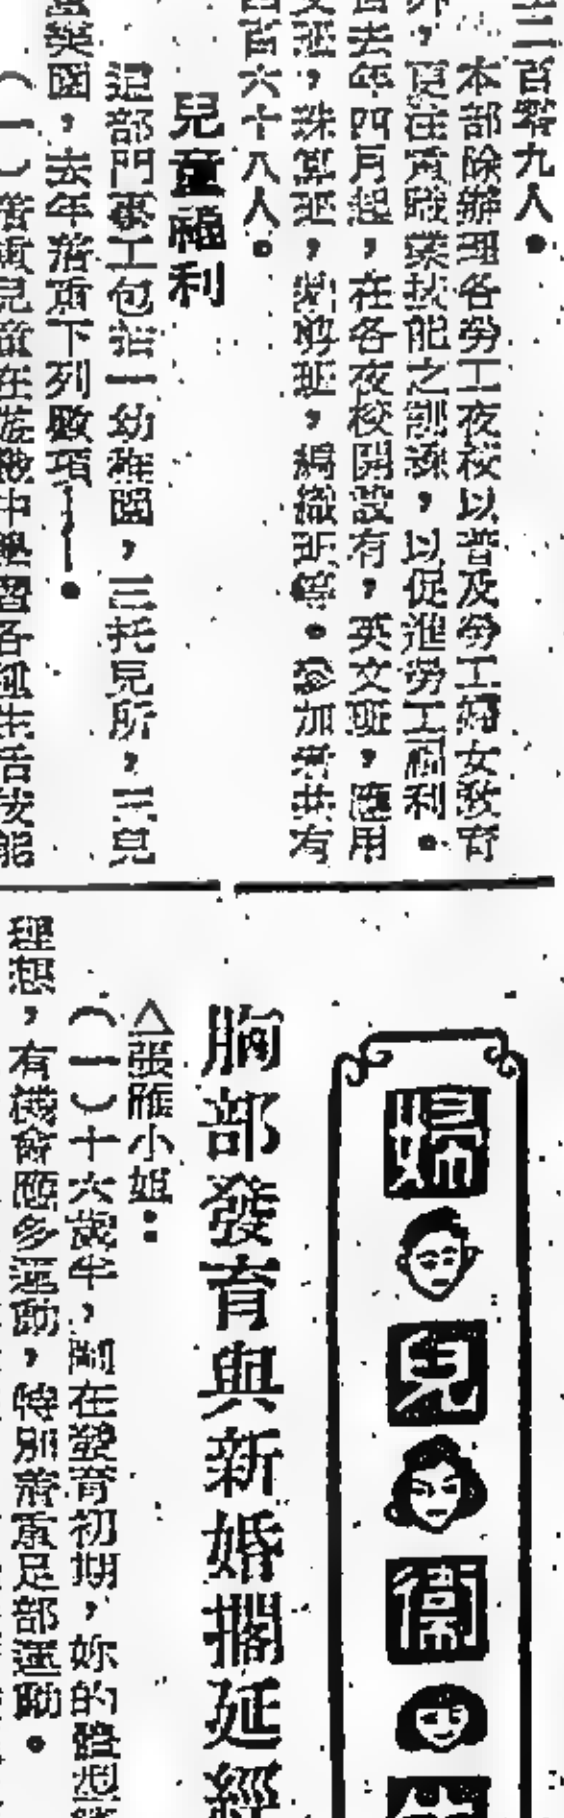 二百零九人。
本部除辦理各勞工夜校以普及勞工婦女教育
外，更注重職業技能之訓練，以促進勞工福利。
去年四月起，在各夜校開設有，英文班，應用
文班，珠算班，裁剪班，編織班等。參加者共有
四百六十八人。
兒童福利
這部門事工包括一幼稚園，三托兒所，三兒
童樂園，去年着重下列數項——。
（一）着重兒童在遊戲中學習各種生活技能
婦兒衞
胸部發育與新婚擱延經
△張雁小姐：
（一）十六歲半，剛在發育初期，妳的體想
理想，有機會應多運動，特別着重足部運動。